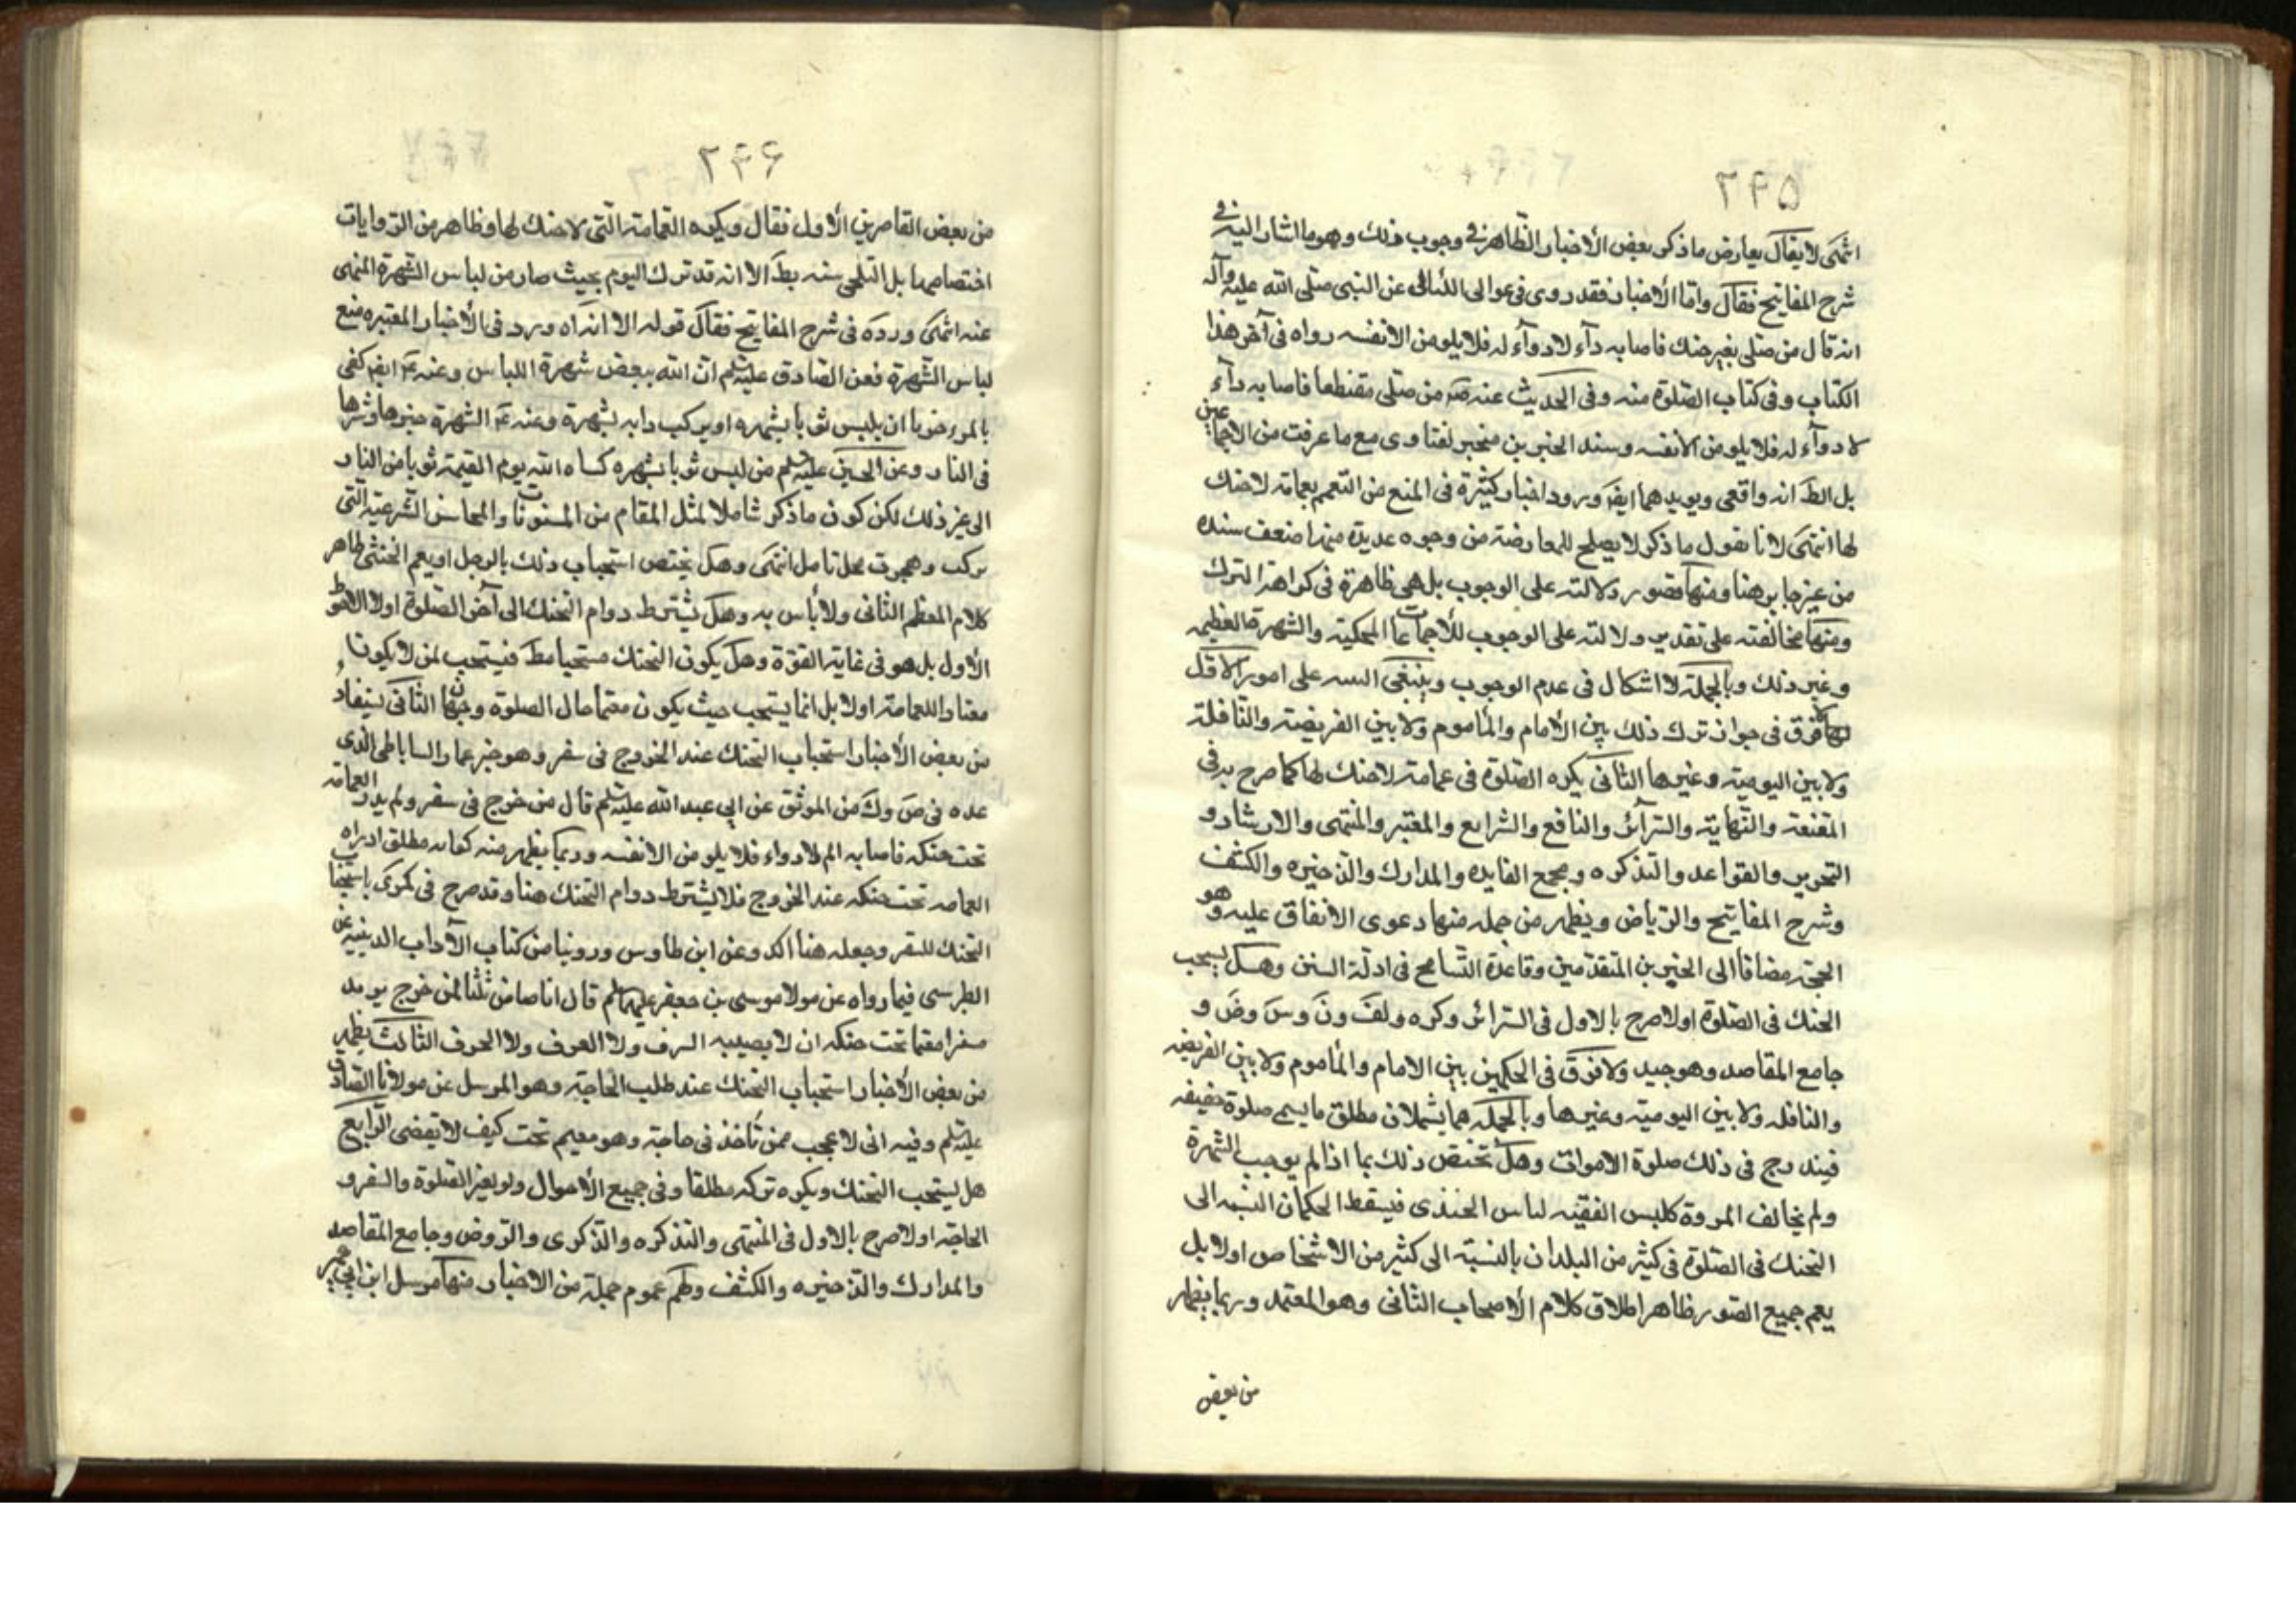 ٢٩٥
انتهى لا يقال يعارض ما ذكر بعض الأخبار الظاهرة في وجوب ذلك وهو ما اشار اليه في
شرح المفاتيح فقال واما الأخبار فقد روى في عوالى اللئالى عن النبى صلى الله عليه وآله
انه قال من صلى بغير حنك فاصابه دآء لا دوآء له فلا يلومن الا نفسه رواه في آخر هذا
الكتاب وفى كتاب الصلوة منه وفى الحديث عنه صَ من صلى مقتطعا فاصابه دآء
لا دوآء له فلا يلومن الا نفسه وسند الخبرين منجبر لفتاوى مع ما عرفت من الاجماعين
بل الظَ انه واقعى ويويدهما ايضَ ورود اخبار كثيرة فى المنع من التعمم بعمامة لا حنك
لها انتهى لانا نقول ما ذكر لا يصلح للمعارضة من وجوه عديدة منها ضعف سنده
من غير جابر هنا ومنها قصور دلالته على الوجوب بل هى ظاهرة فى كراهة الترك
ومنها مخالفته على تقدير دلالته على الوجوب للأجماعات المحكية والشهرة العظيمه
وغير ذلك وبالجملة لا اشكال فى عدم الوجوب وينبغى التنبيه على امور الاول
لا فرق فى جواز ترك ذلك بين الأمام والمأموم ولا بين الفريضة والنافلة
ولا بين اليومية وغيرها الثانى يكره الصلوة فى عمامة لا حنك لها كما صرح به فى
المقنعة والنهاية والسرآئر والنافع والشرايع والمعتبر والمنتهى والارشاد و
التحرير والقواعد والتذكره ومجمع الفايده والمدارك والذخيره والكشف
وشرح المفاتيح والرياض ويظهر من جمله منها دعوى الاتفاق عليه وهو
الحجة مضافا الى الخبرين المتقدمين وقاعدة التسامح فى ادلة السنن وهل يستحب
الحنك فى الصلوة اولا صرح بالاول فى السرائر وكره ولفَ ونَ وسَ وضَ و
جامع المقاصد وهو جيد ولا فرق فى الحكمين بين الامام والمأموم ولا بين الفريضه
والنافله ولا بين اليومية وغيرها وبالجمله هما يشملان مطلق ما يسمى صلوة حقيقه
فيندرج فى ذلك صلوة الاموات وهل تختص ذلك بما اذا لم يوجب الشهرة
ولم يخالف المروة كلبس الفقيه لباس الجندى فيسقط الحكمان النسبه الى
التحنك فى الصلوة فى كثير من البلدان بالنسبة الى كثير من الاشخاص اولا بل
يعم جميع الصور ظاهر اطلاق كلام الأصحاب الثانى وهو المعتمد وربما يظهر
من بعض
٢٩٦
من بعض القاصرين الأول فقال ويكره العمامة التى لا حنك لها وظاهر من الروايات
اختصاصها بل التلحى سنه بطَ الا انه قد ترك اليوم بحيث صار من لباس الشهرة المنهى
عنه انتهى ورده فى شرح المفاتيح فقال قوله الا انه آه ورد فى الأخبار المعتبره منع
لباس الشهرة فعن الصادق عليه السلم ان الله يبغض شهرة اللباس وعنه عَ ايضَ كفى
بالمرء خزيا ان يلبس ثوبا يشهره او يركب دابه تشهرة وعنه عَ الشهرة خيرها وشرها
فى النار وعن الحسين عليه السلم من لبس ثوبا يشهره كساه الله يوم القيمة ثوبا من النار
الى غير ذلك لكن كون ما ذكر شاملا لمثل المقام من المسنونات والمحاسن الشرعية التى
تركت وهجرت محل تامل انتهى وهل يختص استحباب ذلك بالرجل او يعم الخنثى ظاهر
كلام المعظم الثانى ولا بأس به وهل يشترط دوام التحنك الى آخر الصلوة اولا الاحوط
الأول بل هو فى غاية القوة وهل يكون التحنك مستحبا مطَ فيستحب لمن لا يكون
معتادا للعمامة اولا بل انما يستحب حيث يكون معتما حال الصلوة وجهان الثانى يستفاد
من بعض الأخبار استحباب التحنك عند الخروج فى سفر وهو خبر عمار الساباطى الذى
عده فى ضَ وكَ من الموثق عن ابى عبد الله عليه السلم قال من خرج فى سفر ولم يدر العمامة
تحت حنكه فاصابه الم لا دواء فلا يلومن الا نفسه وربما يظهر منه كفاية مطلق اداره
العمامه تحت حنكه عند الخروج فلا يشترط دوام التحنك هنا وقد صرح فى كرى باستحباب
التحنك للسفر وجعله هنا اكد وعن ابن طاوس وروينا من كتاب الآداب الدينية عن
الطبرسى فيما رواه عن مولا موسى بن جعفر عليهما السلم قال انا ضامن ثلثا لمن خرج يريد
سفرا معتما تحت حنكه ان لا يصيبه السرف ولا الغرق ولا الحرق الثالث يظهر
من بعض الأخبار استحباب التحنك عند طلب الحاجة وهو المرسل عن مولانا الصادق
عليه السلم وفيه انى لا عجب ممن تأخذ فى حاجة وهو معتم تحت كيف لا تقضى الرابع
هل يستحب التحنك ويكره تركه مطلقا وفى جميع الأحوال ولو بغير الصلوة والسفر و
الحاجة اولا صرح بالاول فى المنتهى والتذكره والذكرى والروض وجامع المقاصد
والمدارك والذخيره والكشف ولهم عموم جملة من الاخبار منها مرسل ابن ابى عمير